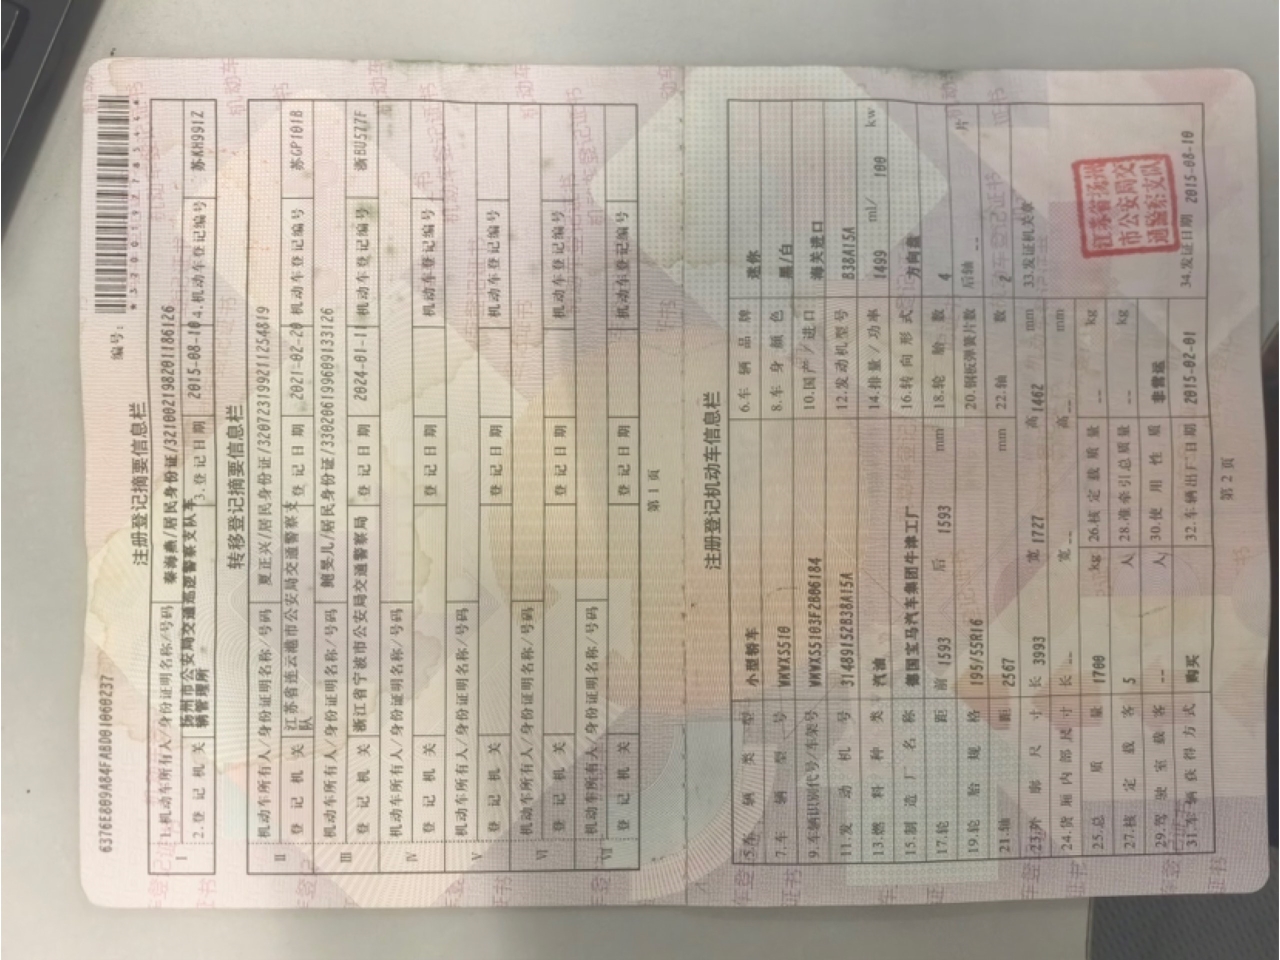 6376E809A84FABD01060237
编号：
注册登记摘要信息栏
I
1.机动车所有人/身份证明名称/号码 秦海燕/居民身份证/321002198201186126
2.登记机关 扬州市公安局交通巡逻警察支队车辆管理所 3.登记日期 2015-08-10 4.机动车登记编号 苏KH991Z
转移登记摘要信息栏
II
机动车所有人/身份证明名称/号码 夏正兴/居民身份证/320723199211254819
登记机关 江苏省连云港市公安局交通警察支队 登记日期 2021-02-20 机动车登记编号 苏GP101B
III
机动车所有人/身份证明名称/号码 鲍旻儿/居民身份证/330206199609133126
登记机关 浙江省宁波市公安局交通警察局 登记日期 2024-01-11 机动车登记编号 浙BU577F
IV
机动车所有人/身份证明名称/号码
登记机关 登记日期 机动车登记编号
V
机动车所有人/身份证明名称/号码
登记机关 登记日期 机动车登记编号
VI
机动车所有人/身份证明名称/号码
登记机关 登记日期 机动车登记编号
VII
机动车所有人/身份证明名称/号码
登记机关 登记日期 机动车登记编号
第1页
注册登记机动车信息栏
5.车辆类型 小型轿车 6.车辆品牌 迷你
7.车辆型号 WMWXS510 8.车身颜色 黑/白
9.车辆识别代号/车架号 WMWXS5103F2B06184 10.国产/进口 海关进口
11.发动机号 31489152B38A15A 12.发动机型号 B38A15A
13.燃料种类 汽油 14.排量/功率 1499 ml/ 100 kw
15.制造厂名称 德国宝马汽车集团牛津工厂 16.转向形式 方向盘
17.轮距 前 1593 后 1593 mm 18.轮胎数 4
19.轮胎规格 195/55R16 20.钢板弹簧片数 后轴 -- 片
21.轴距 2567 mm 22.轴数 2
23.外廓尺寸 长 3993 宽 1727 高 1462 mm
24.货厢内部尺寸 长 -- 宽 -- 高 -- mm
25.总质量 1700 kg 26.核定载质量 -- kg
27.核定载客 5 人 28.准牵引总质量 -- kg
29.驾驶室载客 -- 人 30.使用性质 非营运
31.车辆获得方式 购买 32.车辆出厂日期 2015-02-01
33.发证机关章
江苏省扬州
市公安局交
通警察支队
34.发证日期 2015-08-10
第2页